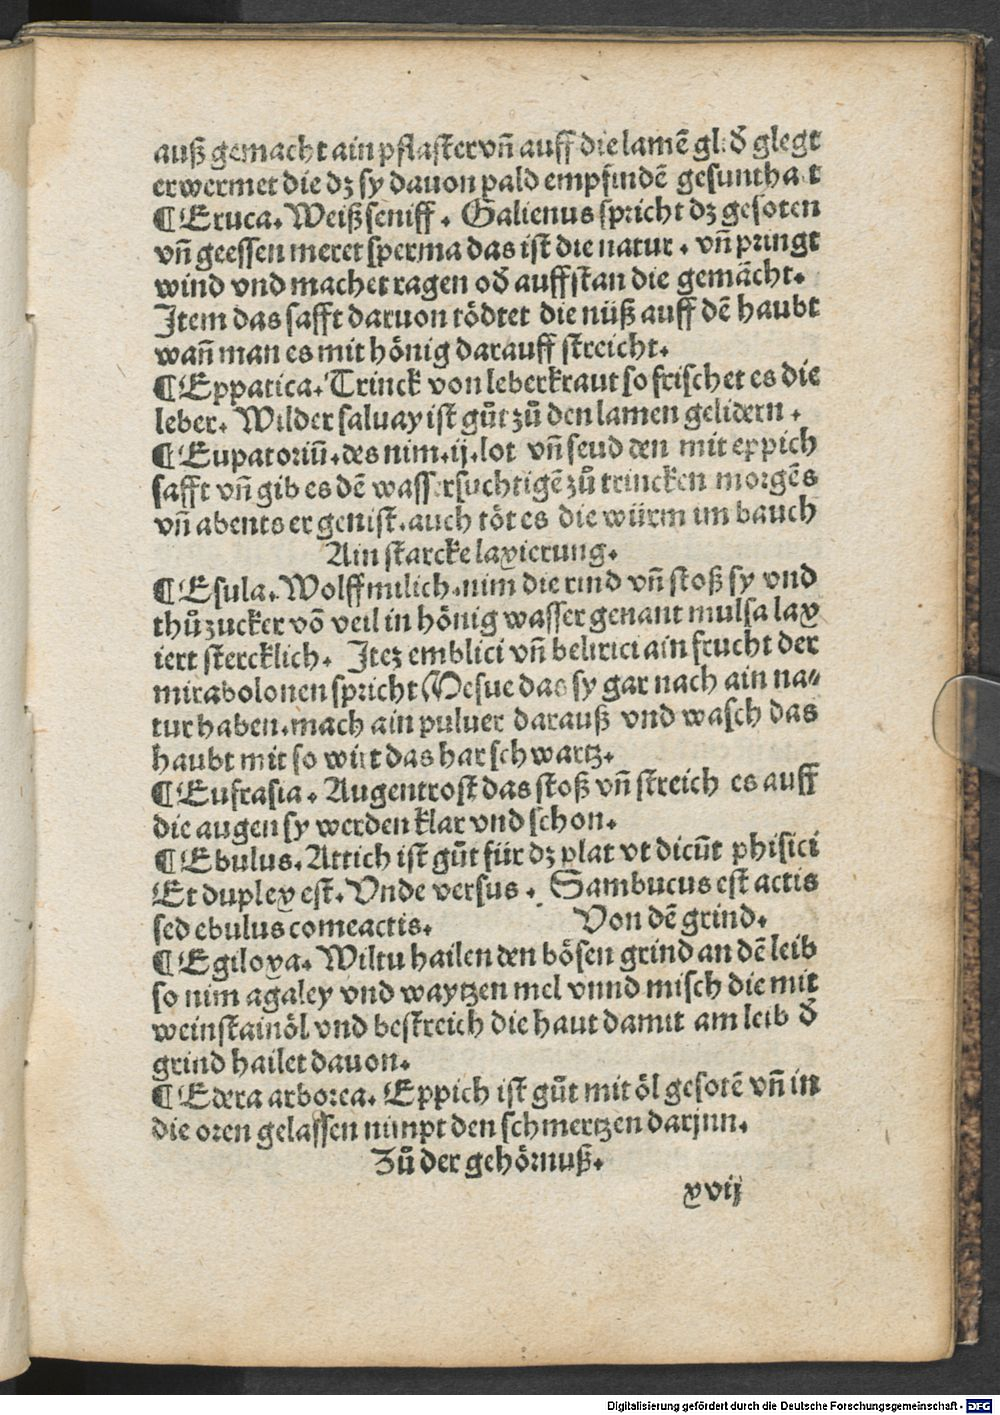 auß gemacht ain pflaster vn̄ auff die lamē glið glegt
erwermet die dz sy dauon pald empfindē gesunthait
¶ Eruca. Weiß seniff. Galienus spricht dz gesoten
vn̄ geessen meret sperma das ist die natur. vn̄ pringt
wind vnd machet ragen oð auffstan die gemächt.
Item das safft daruon tödtet die nüß auff dē haubt
wan̄ man es mit hönig darauff streicht.
¶ Eppatica. Trinck von leberkraut so frischet es die
leber. Wilder saluay ist gůt zů den lamen gelidern.
¶ Eupatoriū. des nim. ij. lot vn̄ seud den mit eppich
safft vn̄ gib es dē wassersuchtigē zů trincken morgēs
vn̄ abents er genist. auch töt es die würm im bauch
Ain starcke laxierung.
¶ Esula. Wolffmilich. nim die rind vn̄ stoß sy vnd
thů zucker vō veil in hönig wasser genant mulsa lax
iert stercklich. Itez emblici vn̄ belirici ain frucht der
mirabolonen spricht Mesue das sy gar nach ain na⸗
tur haben. mach ain puluer darauß vnd wasch das
haubt mit so wirt das har schwartz.
¶ Eufrasia. Augentrost das stoß vn̄ streich es auff
die augen sy werden klar vnd schon.
¶ Ebulus. Attich ist gůt für dz plat vt dicūt phisici
Et duplex est. Vnde versus. Sambucus est actis
sed ebulus comeactis. Von dē grind.
¶ Egiloxa. Wiltu hailen den bösen grind an dē leib
so nim agaley vnd waytzen mel vnnd misch die mit
weinstainöl vnd bestreich die haut damit am leib ð
grind hailet dauon.
¶ Edera arborea. Eppich ist gůt mit öl gesotē vn̄ in
die oren gelassen nimpt den schmertzen darjnn.
Zů der gehörnuß.
xvij
Digitalisierung gefördert durch die Deutsche Forschungsgemeinschaft - DFG